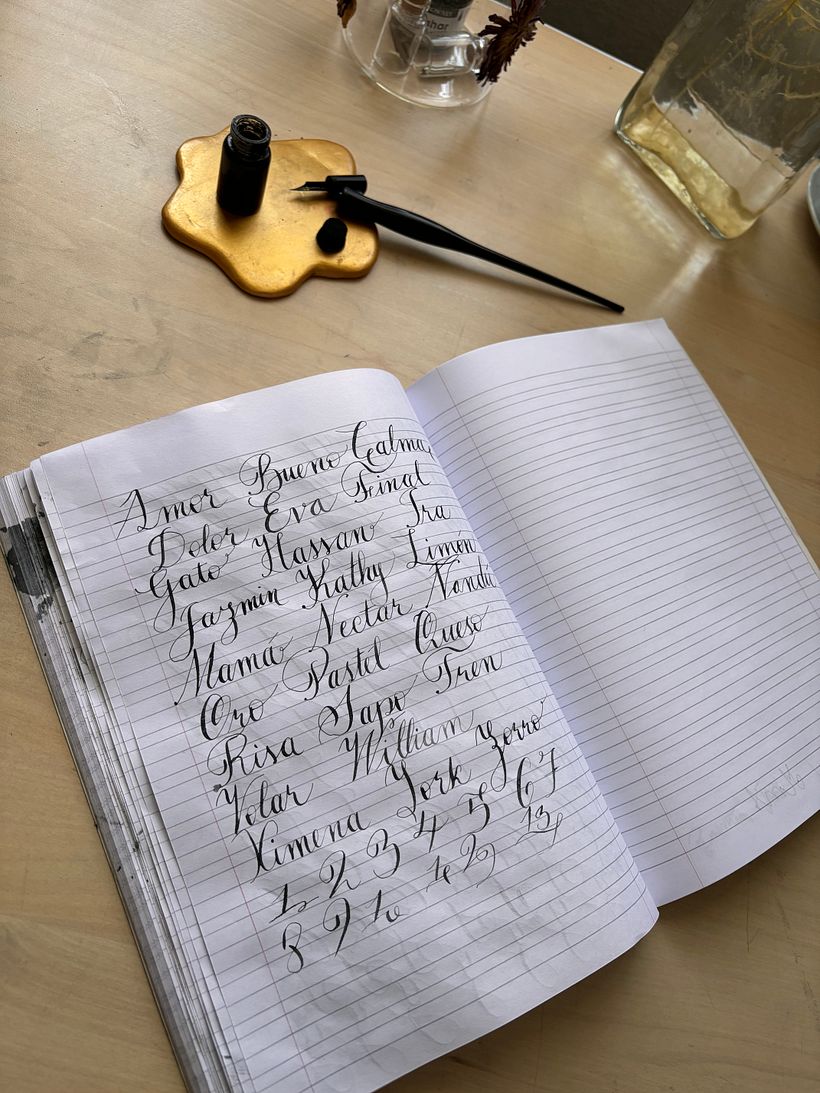 Amor Bueno Calma
Dolor Eva Final
Gato Hassan Ira
Jazmin Kathy Limón
Mamá Nectar
Oro Pastel Queso
Risa Sapo Tren
Volar William
Ximena York Zorro
1 2 3 4 5 6 7
8 9